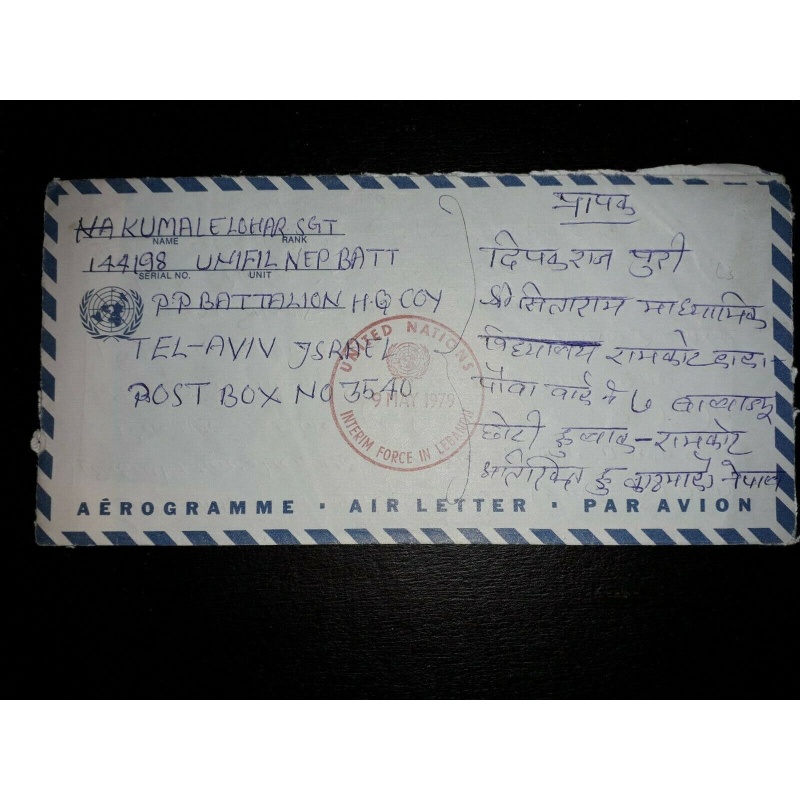 KUMALELOHAR SGT
NAME RANK
144198 UNIFIL NEP BATT
SERIAL NO. UNIT
P.P BATTALION H.Q COY
TEL-AVIV ISRAEL
POST BOX NO 3540
UNITED NATIONS
9 MAY 1979
INTERIM FORCE IN LEBANON
प्रापक
दिपकराज पुरी
श्री सिताराम माध्यामिक
विध्यालय रामकोट
पौवा वार्ड नं ७
छोटी हुलाक - रामकोट
नेपाल
AÉROGRAMME • AIR LETTER • PAR AVION